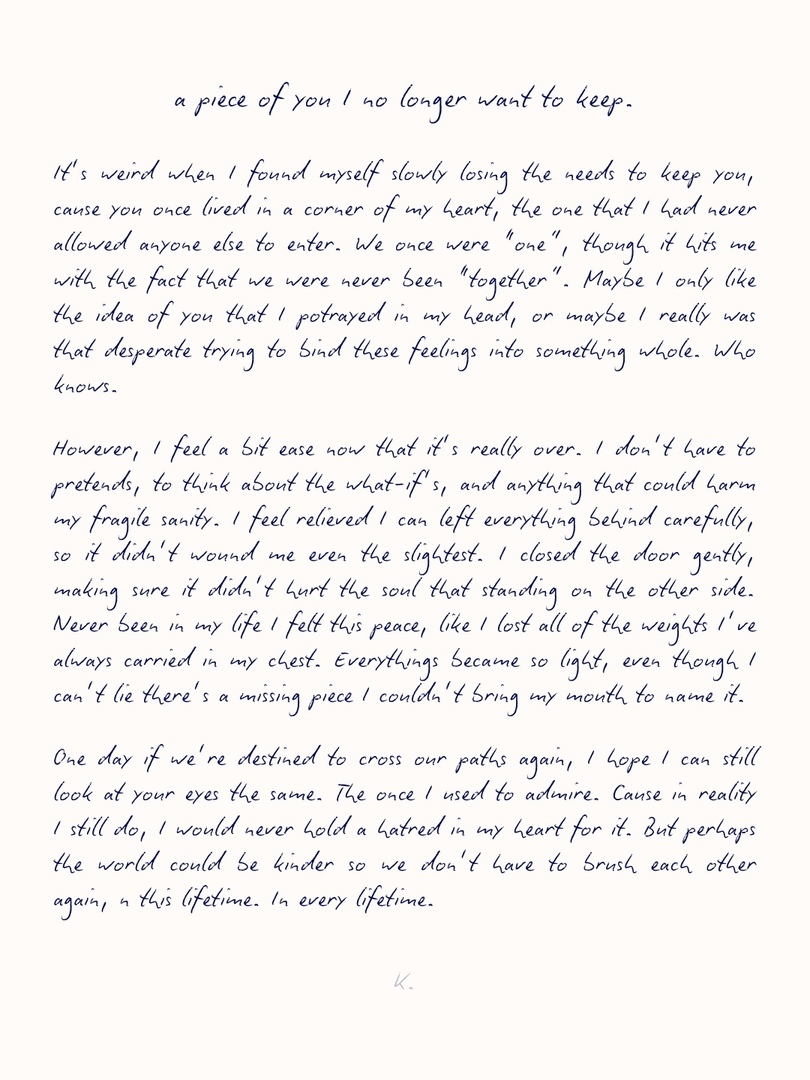 a piece of you I no longer want to keep.
It's weird when I found myself slowly losing the needs to keep you,
cause you once lived in a corner of my heart, the one that I had never
allowed anyone else to enter. We once were "one", though it hits me
with the fact that we were never been "together". Maybe I only like
the idea of you that I potrayed in my head, or maybe I really was
that desperate trying to bind these feelings into something whole. Who
knows.
However, I feel a bit ease now that it's really over. I don't have to
pretends, to think about the what-if's, and anything that could harm
my fragile sanity. I feel relieved I can left everything behind carefully,
so it didn't wound me even the slightest. I closed the door gently,
making sure it didn't hurt the soul that standing on the other side.
Never been in my life I felt this peace, like I lost all of the weights I've
always carried in my chest. Everythings became so light, even though I
can't lie there's a missing piece I couldn't bring my mouth to name it.
One day if we're destined to cross our paths again, I hope I can still
look at your eyes the same. The once I used to admire. Cause in reality
I still do, I would never hold a hatred in my heart for it. But perhaps
the world could be kinder so we don't have to brush each other
again, n this lifetime. In every lifetime.
K.